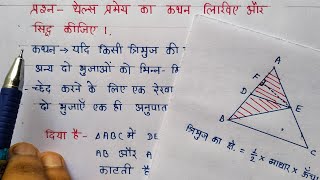 प्रश्न- थेल्स प्रमेय का कथन लिखिए और
सिद्ध कीजिए।
कथन → यदि किसी त्रिभुज की
अन्य दो भुजाओं को भिन्न-
छेद करने के लिए एक रेखा
दो भुजाएँ एक ही अनुपात
दिया है- ΔABC में DE
AB और A
काटती है
A
F
D
E
B
C
त्रिभुज का क्षे. = 1/2 × आधार ×